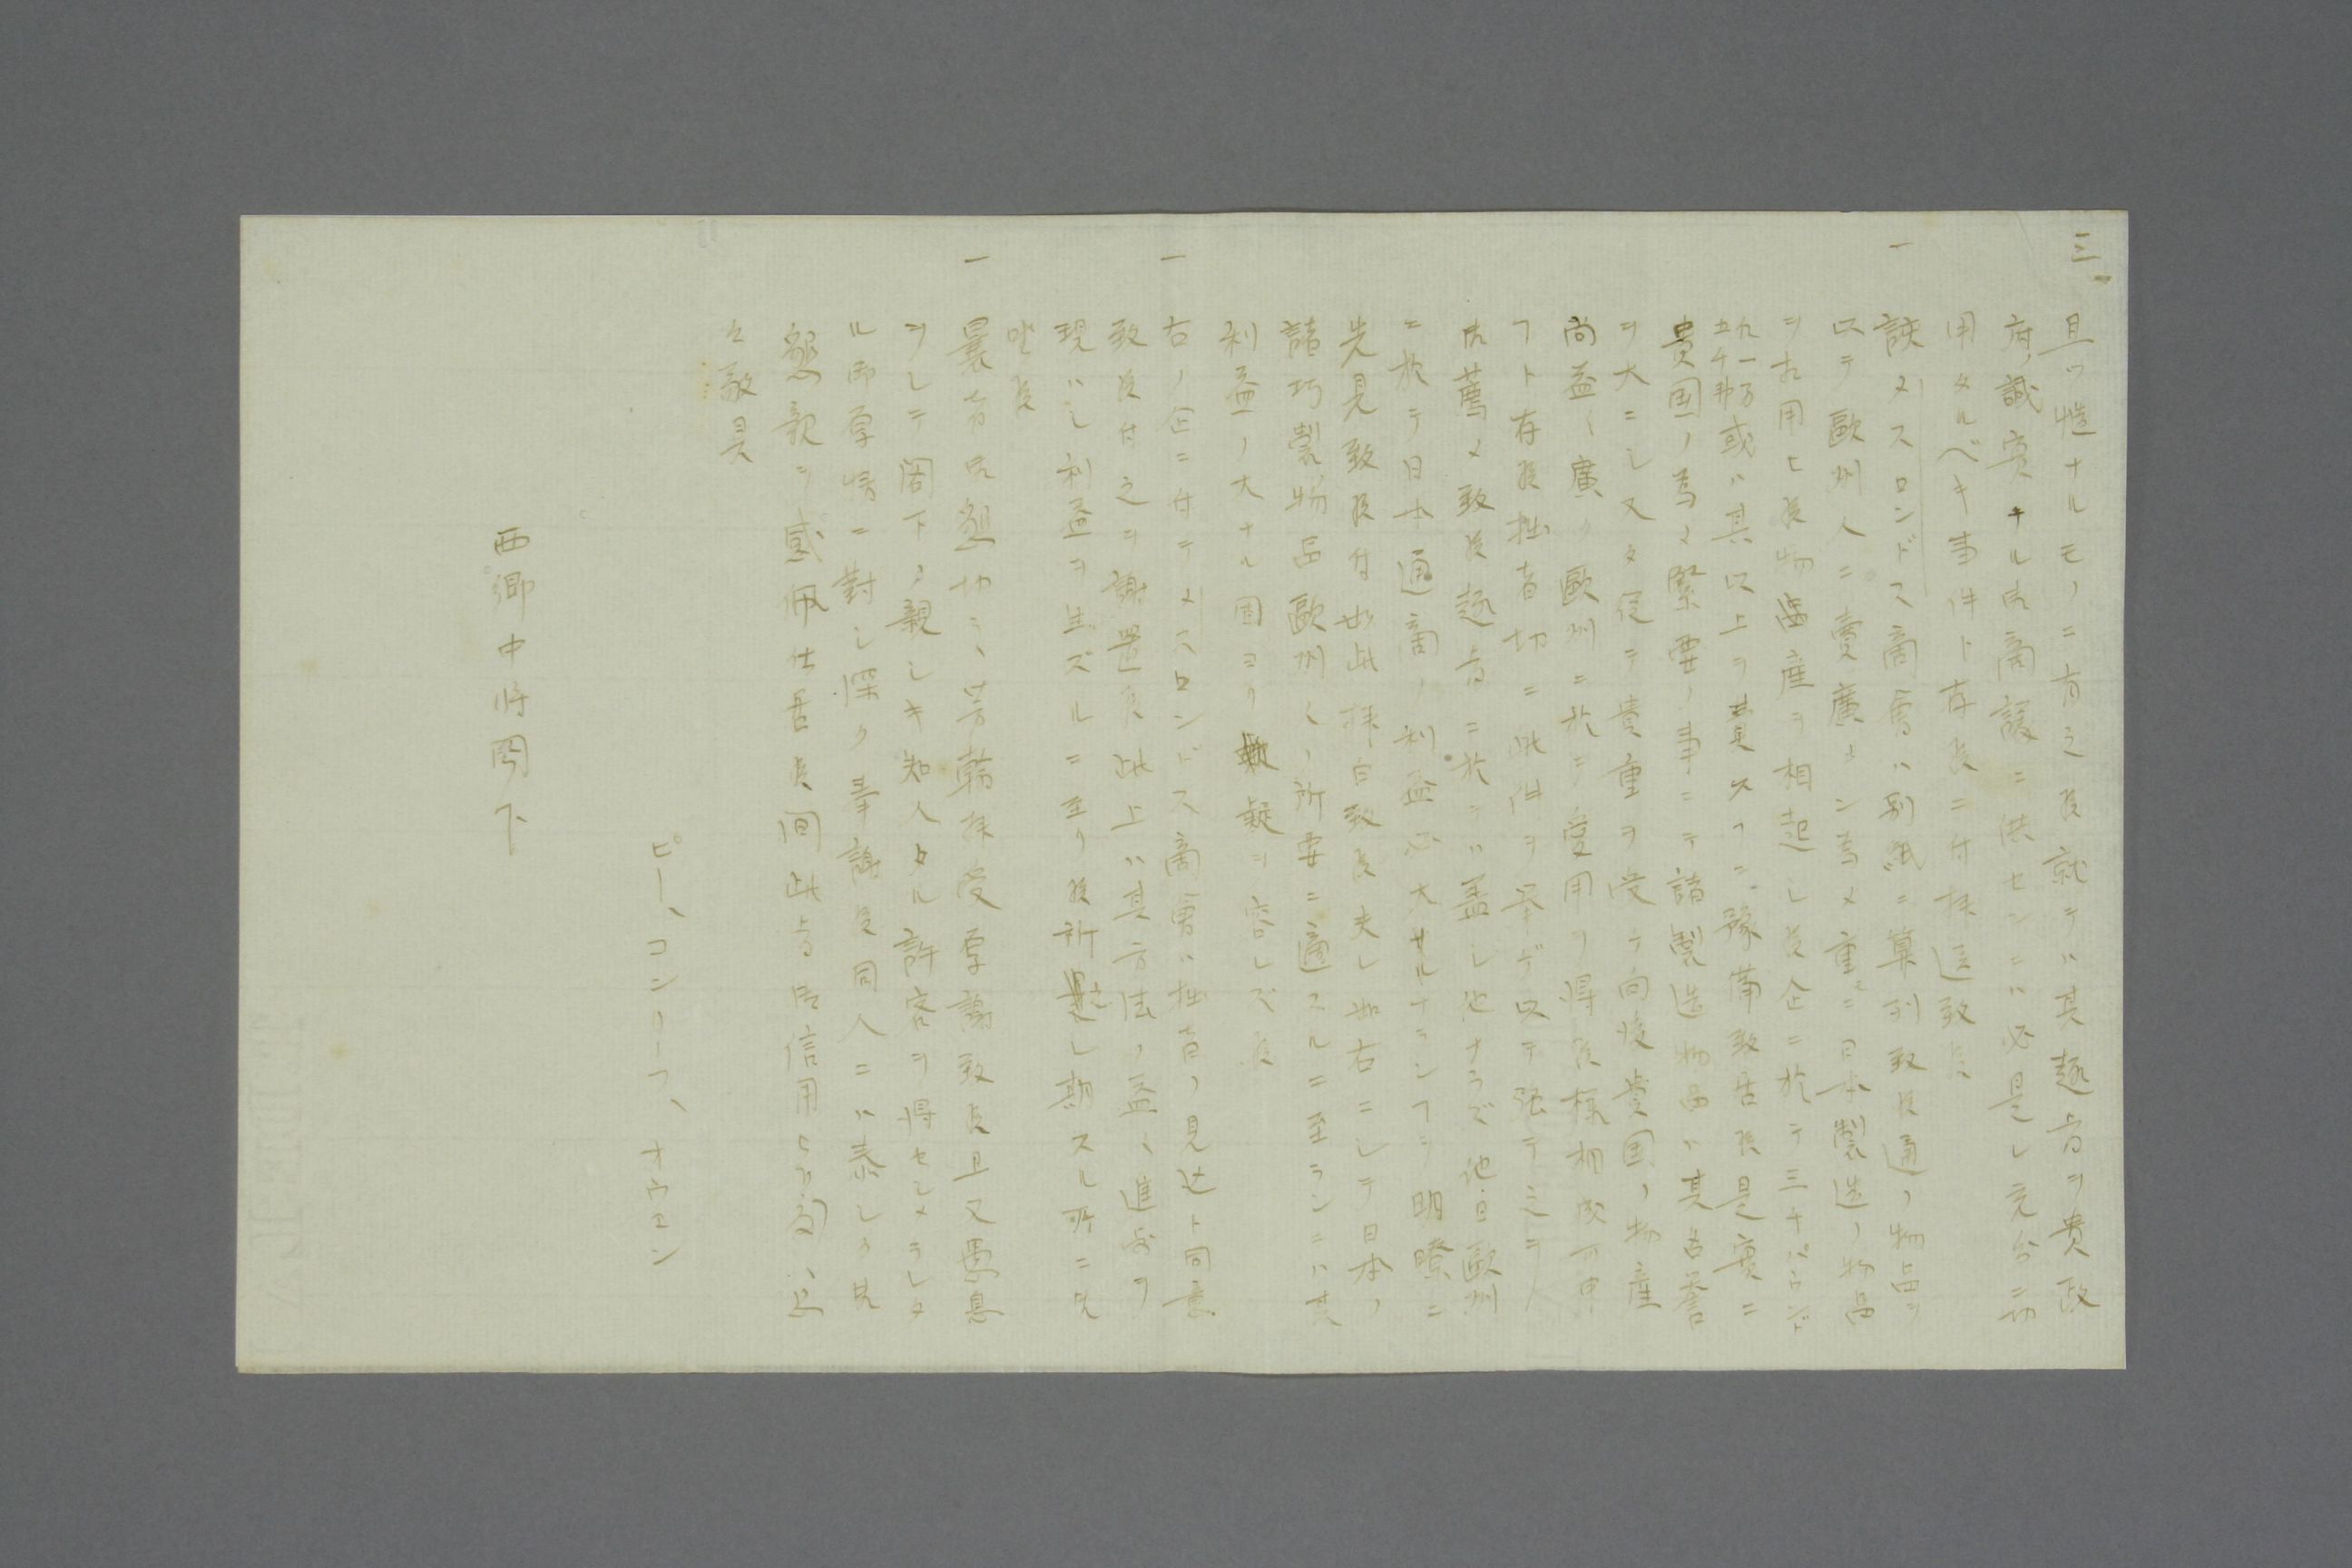 三
且ツ慥ナルモノニ有之候就テハ其趣旨ヲ貴政
府ノ誠実ナル御商議ニ供センニハ必是レ充分ニ御
用タルベキ事件ト存候ニ付拝送致候
一 該メスロンドス商会ハ別紙ニ算列致候通ノ物品ヲ
以テ欧州人ニ売廣メン為メ重ニ日本製造ノ物品
ヲ相用ヒ候物産ヲ相起し候企ニ於テ三千パウンド
或ハ其以上ヲ費スフニ豫備致居候是実ニ
貴国ノ為メ緊要ノ事ニテ諸製造物品ハ其名誉
ヲ大ニし又タ従テ貴重ヲ受ケ向後貴国ノ物産
尚益々廣ク欧州ニ於テ受用ヲ得候様相成可申
フト存候拙者切ニ此件ヲ挙ゲ以テ強テ之ヲ
御薦メ致候趣旨ニ於テハ蓋し他ナラズ他日欧州
ニ於テ日本通商ノ利益必大ナルナランフヲ明瞭ニ
先見致候付如此拝白致候夫レ如右ニシテ日本ノ
諸巧製物品欧州人ノ所要ニ適スルニ至ランニハ其
利益ノ大ナル固ヨリ疑ヲ容レズ候
一 右ノ企ニ付テメスロンドス商会ハ拙者ノ見込ト同意
致候付之ヲ謝置候此上ハ其方法ノ益々進歩ヲ
現ハし利益ヲ生ズルニ至リ候所 期スル所ニ御
坐候
一 曩者御懇切之芳翰拝受厚謝致候且又愚息
ヲシテ閣下ノ親シキ知人タル許容ヲ得セシメラレタ
ル御厚情ニ対し深ク奉謝候同人ニハ泰しク其
懇親ヲ感佩仕居候間此旨御信用 ハ
々敬具
ピー、コンリーフ、ナウエン
西郷中将閣下